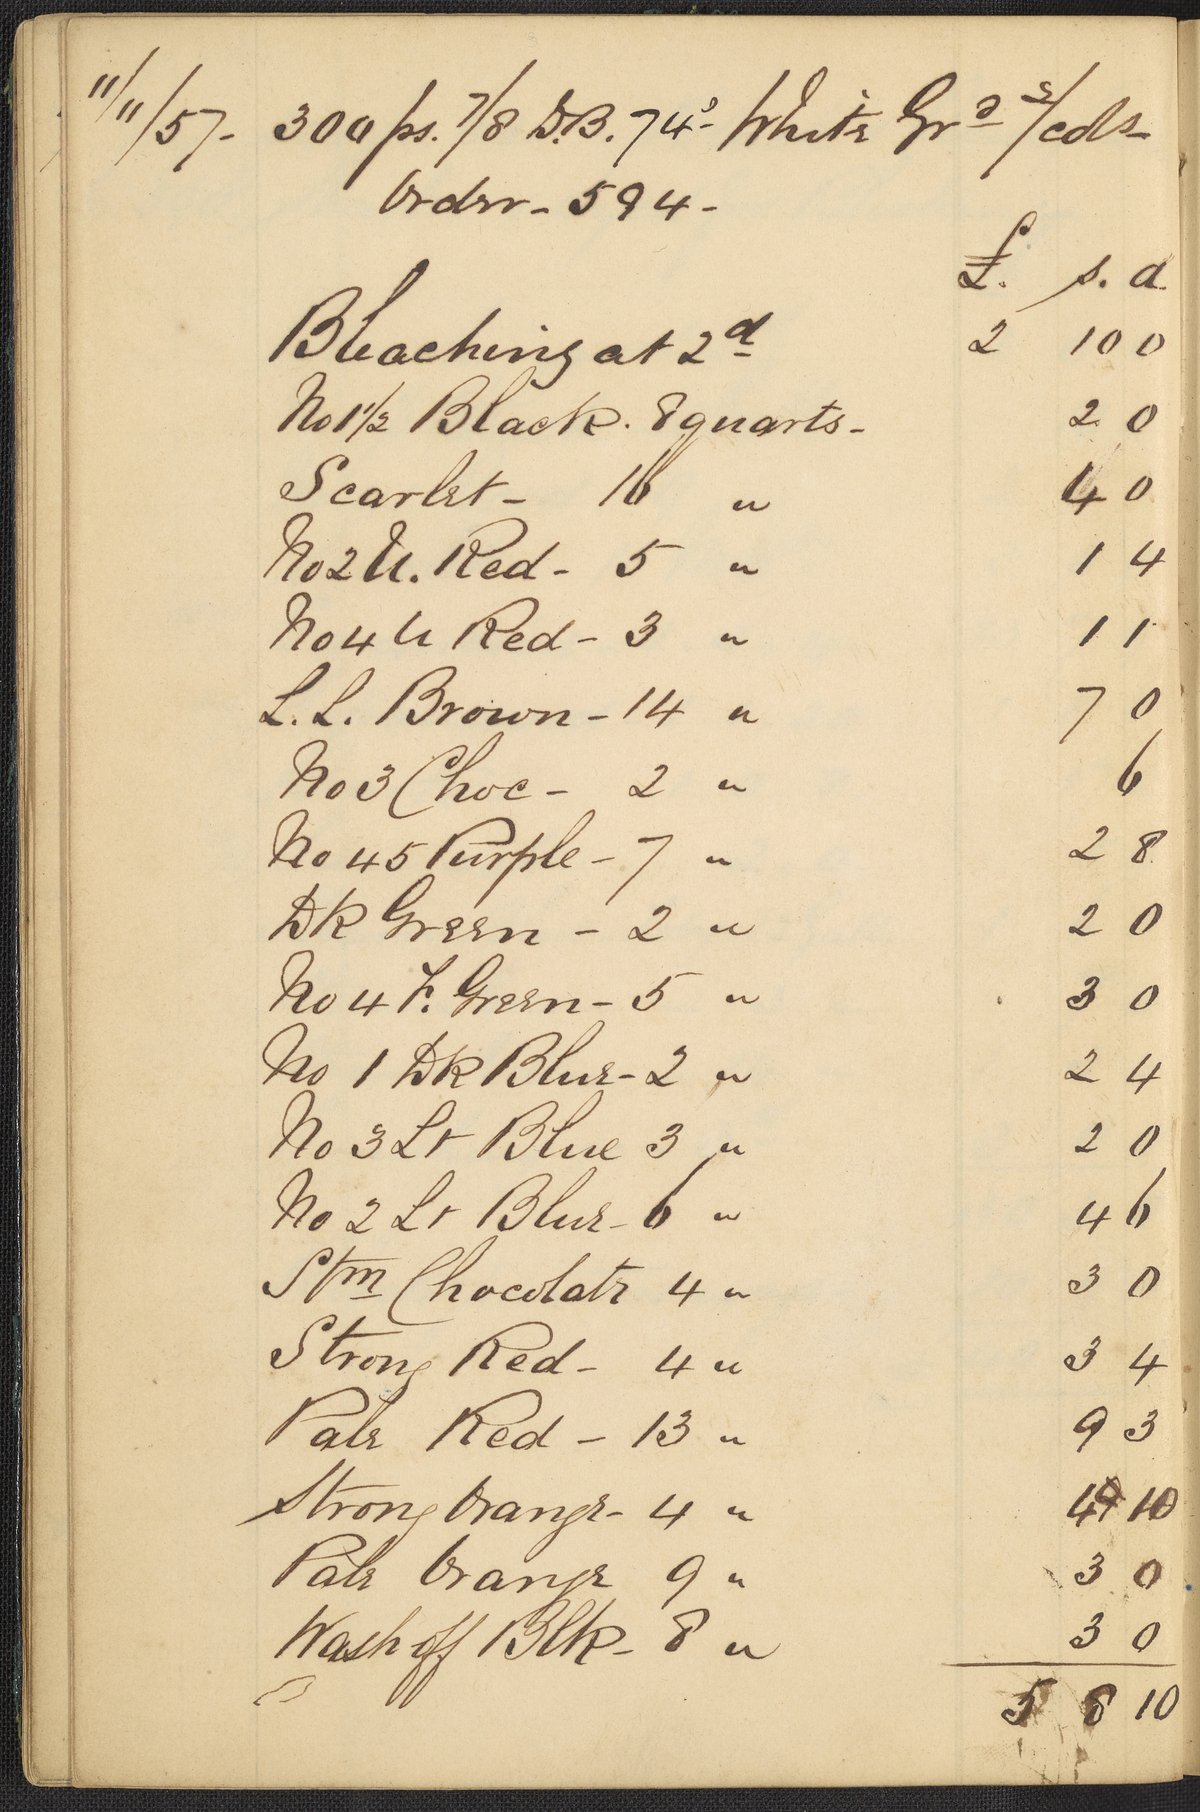 11/11/57- 300 ps. 7/8 D.B. 74s- White Grd 2/cols-
Order- 594-
£. s. d
Bleaching at 2d 2 10 0
No 1½ Black. 8 quarts- 2 0
Scarlet- 16 " 4 0
No 2 U. Red- 5 " 1 4
No 4 U Red- 3 " 1 1
L. L. Brown- 14 " 7 0
No 3 Choc- 2 " 6
No 45 Purple- 7 " 2 8
Dk Green - 2 " 2 0
No 4 F. Green- 5 " 3 0
No 1 Dk Blue- 2 " 2 4
No 3 Lt Blue 3 " 2 0
No 2 Lt Blue- 6 " 4 6
Stm Chocolate 4 " 3 0
Strong Red- 4 " 3 4
Pale Red - 13 " 9 3
Strong Orange- 4 " 10
Pale Orange 9 " 3 0
Wash off Blk- 8 " 3 0
5 8 10